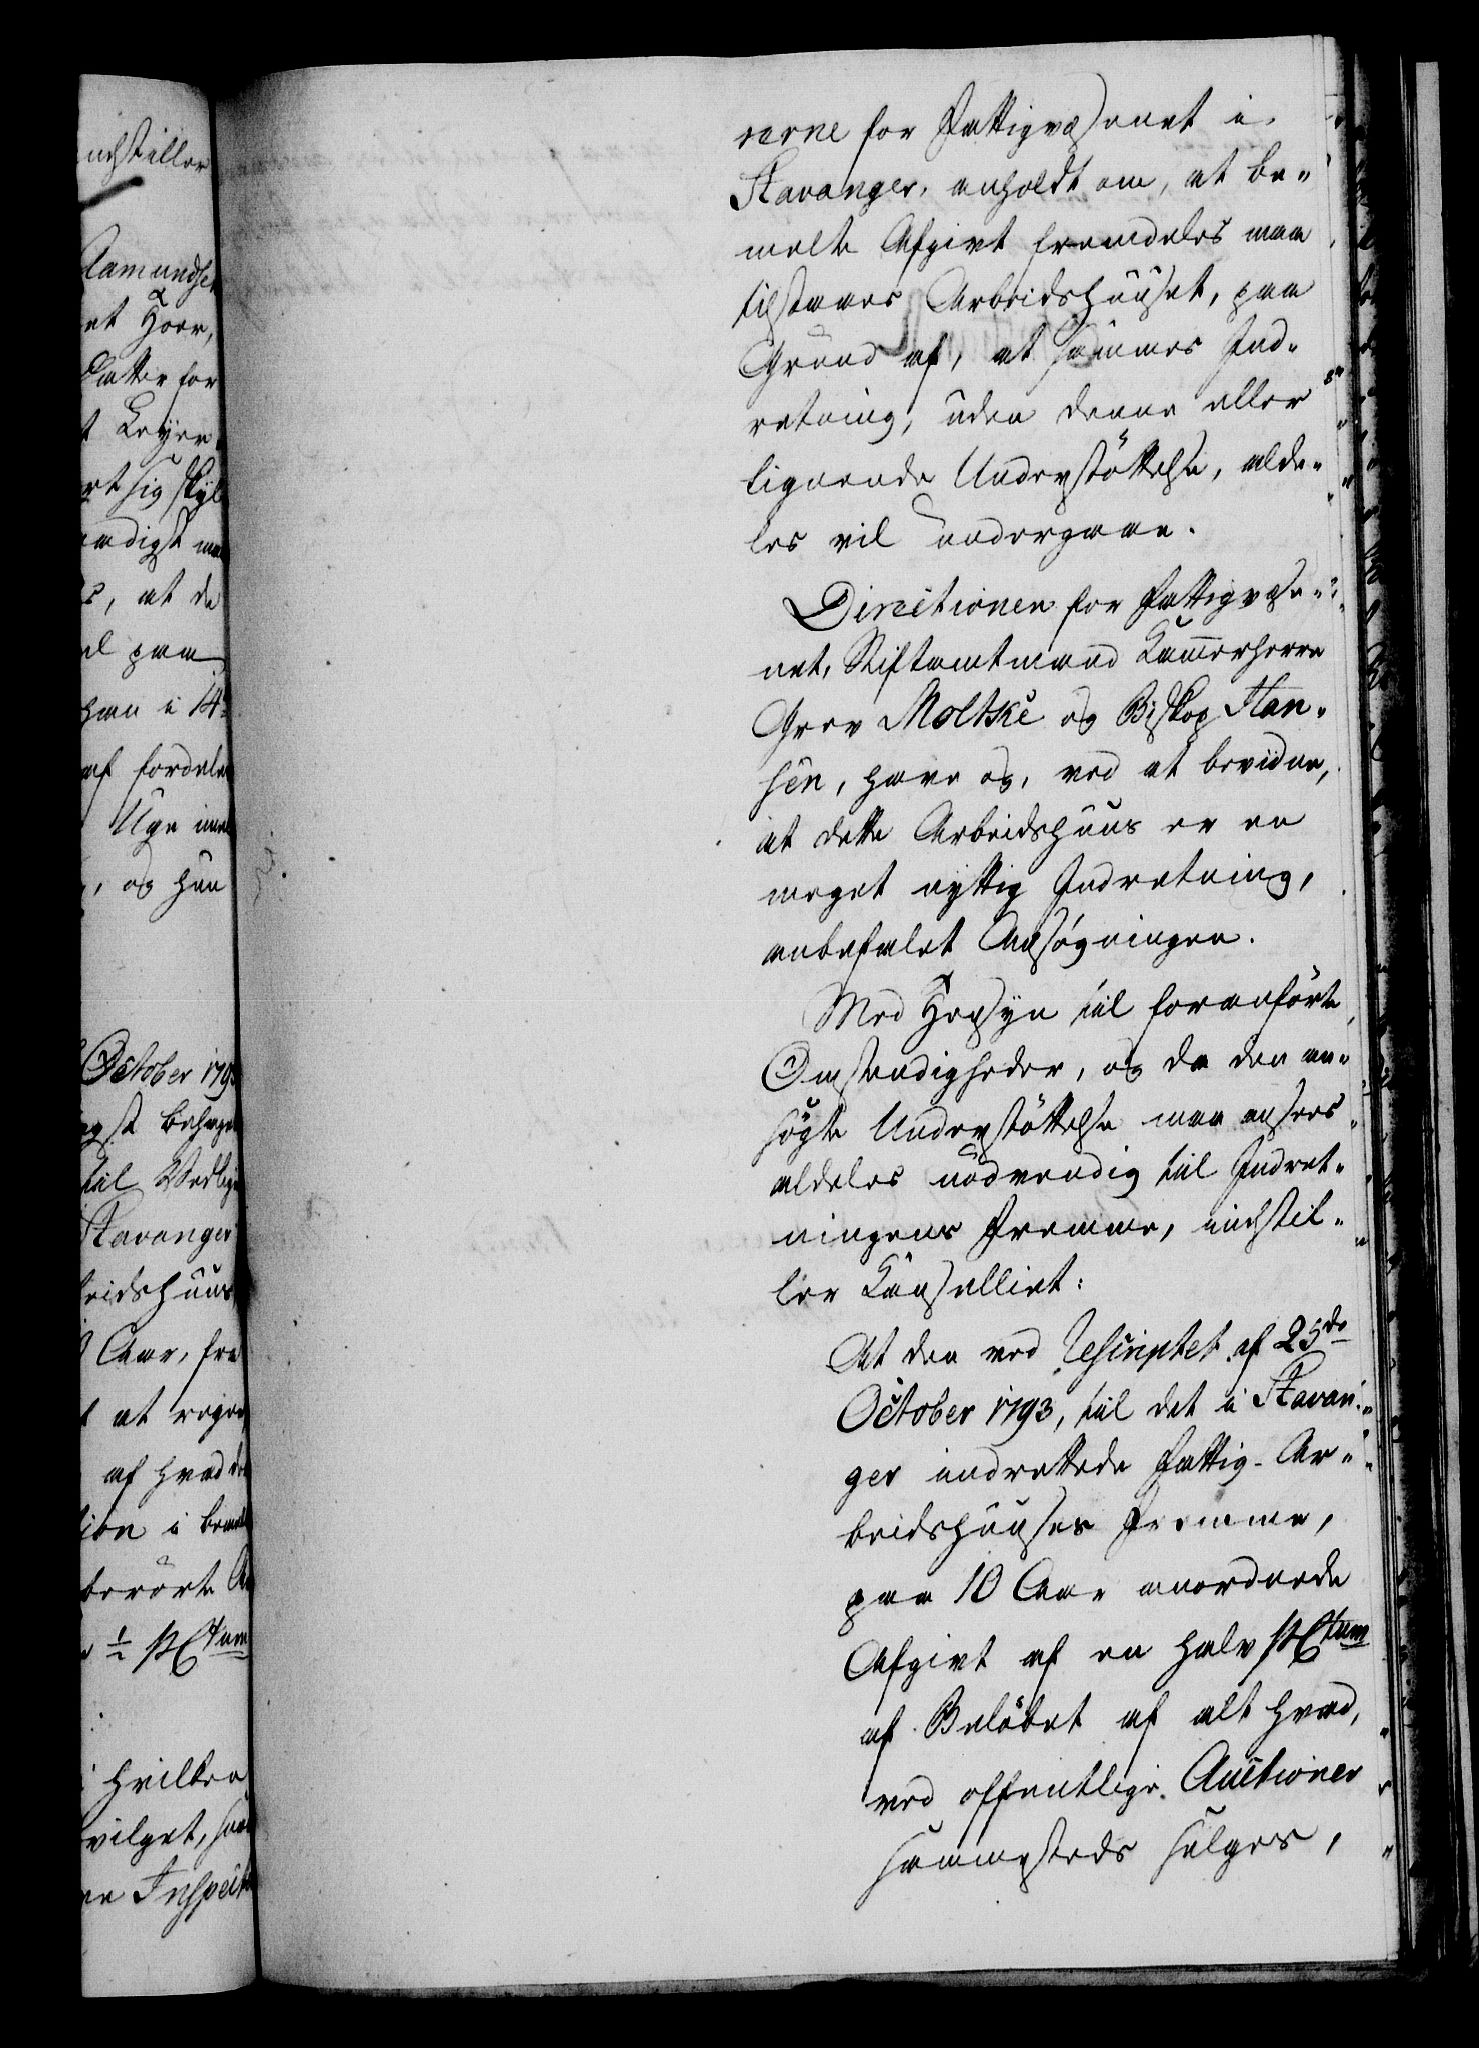 ndstiller
Aamundse
et Hoer,
Datter for
t Leyer-
rt sig skyl
aadigst m
s, at de
el paa
han i 14
af fordele
Uge im
, og hun
October 179
igst behage
til Vedlig
Stavanger
beidshuus
Aar, fra
t at regne,
af hvad
ion i bem
berørte A
½ pCtum
i hvilken
vilget, saa
en Inspect
rerne for Fattigvæsenet i
Stavanger, anholdt om, at be-
melte Afgivt fremdeles maa
tilstaaes Arbeidshuuset, paa
Grund af, at sammes Ind-
retning, uden denne eller
lignende Understøttelse, alde-
les vil undergaae.
Directionen for Fattigvæse-
net, Stiftamtmand Kammerherre
Grev Moltke og Biskop Han-
sen, have og, ved at bevidne,
at dette Arbeidshuus er en
meget nyttig Indretning,
anbefalet Ansøgningen.
Med Hensyn til foranførte
Omstændigheder, og da den an-
søgte Understøttelse maa ansees
aldeles nødvendig til Indret-
ningens Fremme, indstil-
ler Kanselliet:
At den ved Rescriptet af 25de
October 1793, til det i Stavan-
ger indrettede Fattig-Ar-
beidshuuses Fremme,
paa 10 Aar anordnede
Afgivt af en halv pCtum
af Beløbet af alt hvad,
ved offentlige Auctioner
sammesteds sælges,